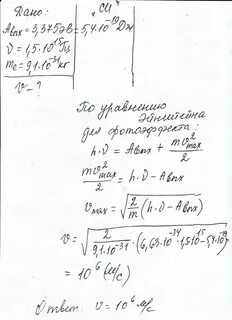 Дано:
"СИ"
Aвых = 3,375 эВ = 5,4·10⁻¹⁹ Дж
ν = 1,5·10¹⁵ Гц
mₑ = 9,1·10⁻³¹ кг
v - ?
По уравнению
Эйнштейна
для фотоэффекта:
h·ν = Aвых + mv²max/2
mv²max/2 = h·ν - Aвых
vmax = √(2/m (h·ν - Aвых))
v = √(2/9,1·10⁻³¹ (6,63·10⁻³⁴·1,5·10¹⁵-5,4·10⁻¹⁹)) =
= 10⁶ (м/с)
Ответ: v = 10⁶ м/с